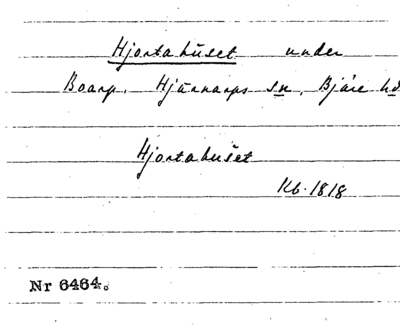 Hjortahuset under
Boarp. Hjärnarps sn, Bjäre hd
Hjortahuset
Kb. 1818
Nr 6464.